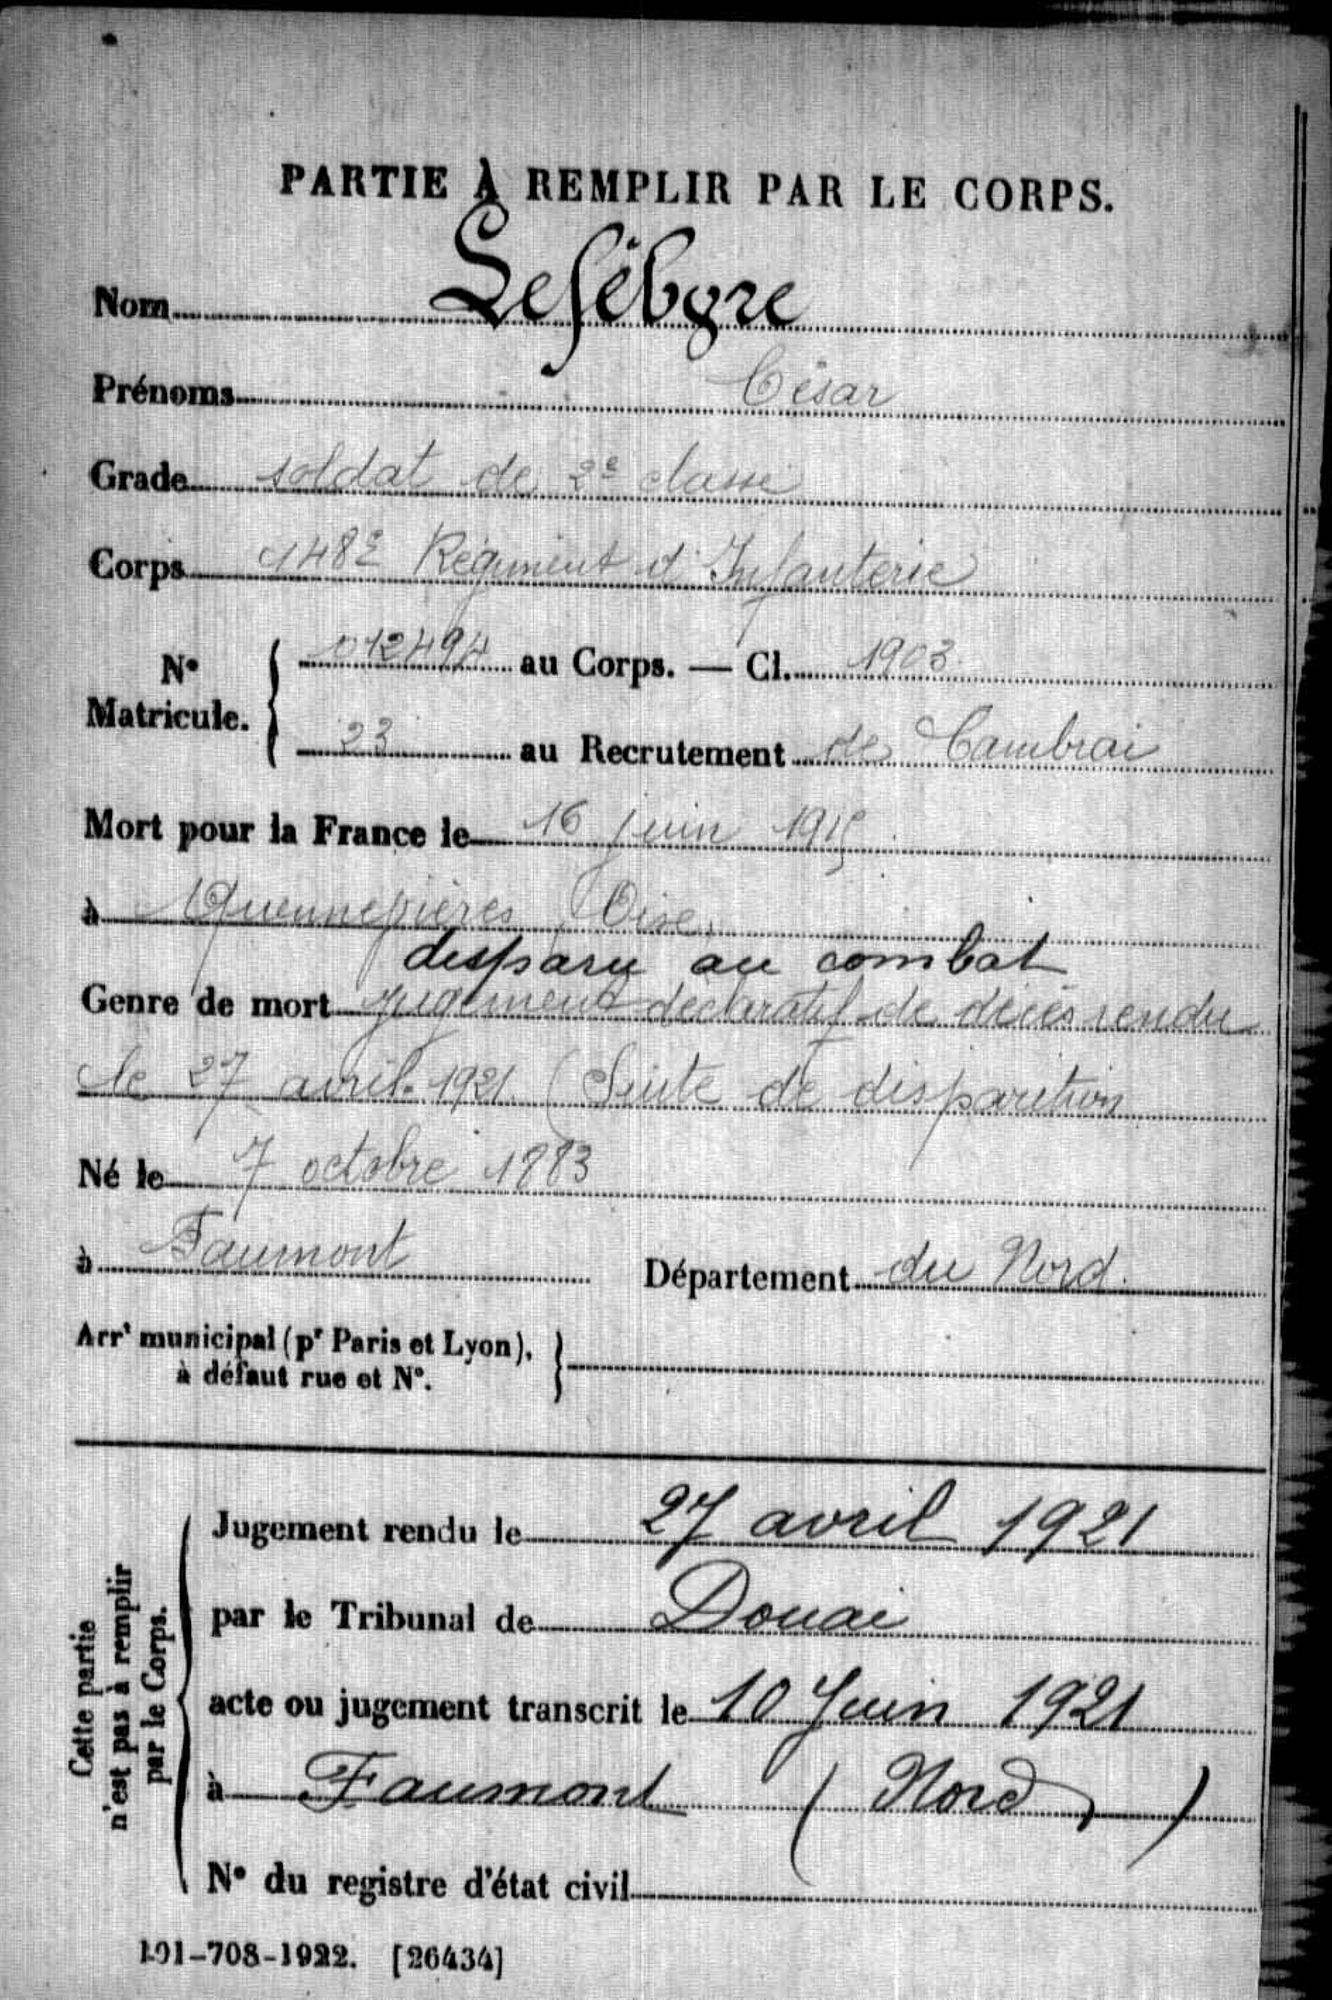 PARTIE À REMPLIR PAR LE CORPS.
Nom Lefébvre
Prénoms César
Grade soldat de 2e classe
Corps 148e Régiment d'Infanterie
N° Matricule. 012494 au Corps. — Cl. 1903
23 au Recrutement de Cambrai
Mort pour la France le 16 juin 1915
à Quennevières Oise
disparu au combat
Genre de mort jugement déclaratif de décès rendu
le 27 avril 1921. (Suite de disparition
Né le 7 octobre 1883
à Faumont Département du Nord.
Arrt municipal (pr Paris et Lyon),
à défaut rue et N°.
Cette partie
n'est pas à remplir
par le Corps.
Jugement rendu le 27 avril 1921
par le Tribunal de Douai
acte ou jugement transcrit le 10 Juin 1921
à Faumont (Nord)
N° du registre d'état civil
101-708-1922. [26434]